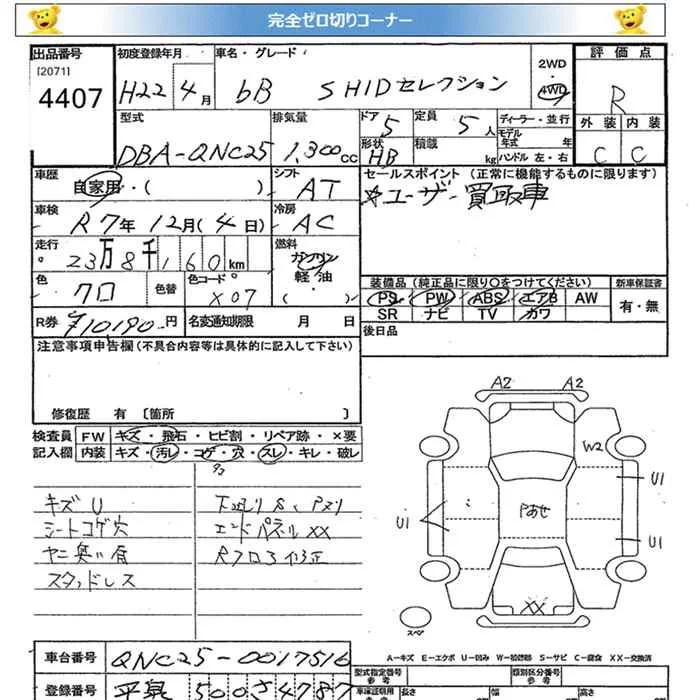 完全ゼロ切りコーナー
出品番号
[2071]
4407
初度登録年月
H22年4月
車名・グレード
bB SHIDセレクション
2WD
・
4WD
評価点
R
外装 内装
C C
型式
DBA-QNC25
排気量
1,300cc
ドア
5
定員
5人
ディーラー・並行
モデル年式 年
ハンドル 左・右
形状
HB
積載
kg
車歴
自家用・( )
シフト
AT
セールスポイント (正常に機能するものに限ります)
☆ユーザー買取車
車検
R7年12月(4日)
冷房
AC
走行
23万8千160km
燃料
ガソリン
軽・油
( )
色
クロ
色替
色コード
X07
装備品 (純正品に限り○をつけてください)
PS PW ABS エアB AW
SR ナビ TV カワ
新車保証書
有・無
R券 ¥10190円
名変通知期限 月 日
後日品
注意事項申告欄 (不具合内容等は具体的に記入して下さい)
修復歴 有 〔箇所 〕
検査員記入欄
FW キズ・飛石・ヒビ割・リペア跡・×要
内装 キズ・汚レ・コゲ・穴・スレ・キレ・破レ
キズU
シートコゲ穴
ヤニ臭い有
スタッドレス
エンドパネルXX
Rフロア修正
A2 A2
W2
U1
U1
U1
Pあせ
XX
スペア
A-キズ E-エクボ U-凹み W-補修跡 S-サビ C-腐食 XX-交換済
車台番号
QNC25-0017516
登録番号
平泉500さ4787
型式指定番号
参考
類別区分番号
参考
長さ
幅
高さ